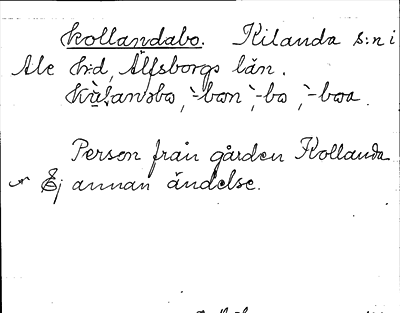 kollandabo. Kilanda s:n i
Ale h:d, Älfsborgs län.
-bon, -bo, -boa.
Person från gården Kollanda
Ej annan ändelse.